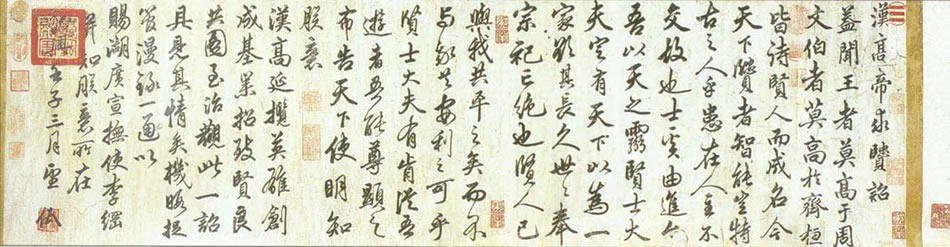 漢高帝求賢詔
蓋聞王者莫高于周
文伯者莫高於齊桓
皆待賢人而成名今
天下賢者智能豈特
古之人乎患在人主不
交故也士奚由進今
吾以天之靈賢士大
夫定有天下以為一
家欲其長久世々奉
宗祀亡絕也賢人已
與我共平之矣而不
与吾共安利之可乎
賢士大夫有肯從吾
遊者吾能尊顯之
布告天下使明知
朕意
漢高延攬英雄創
成基業招致賢良
共圖至治觀此一詔
具見其情矣機暇捉
筆漫錄一通以
賜湖廣宣撫使李綱
并知朕意所在
壬子三月望